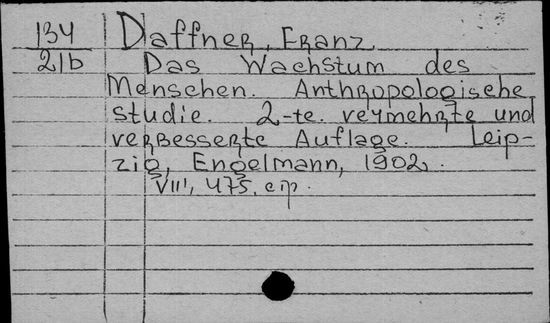 134 Daffner, Franz
21b Das Wachstum des
Menschen. Anthropologische
studie. 2-te. vermehrte und
verbesserte Auflage. Leip-
zig, Engelmann, 1902.
VIII, 475, c.